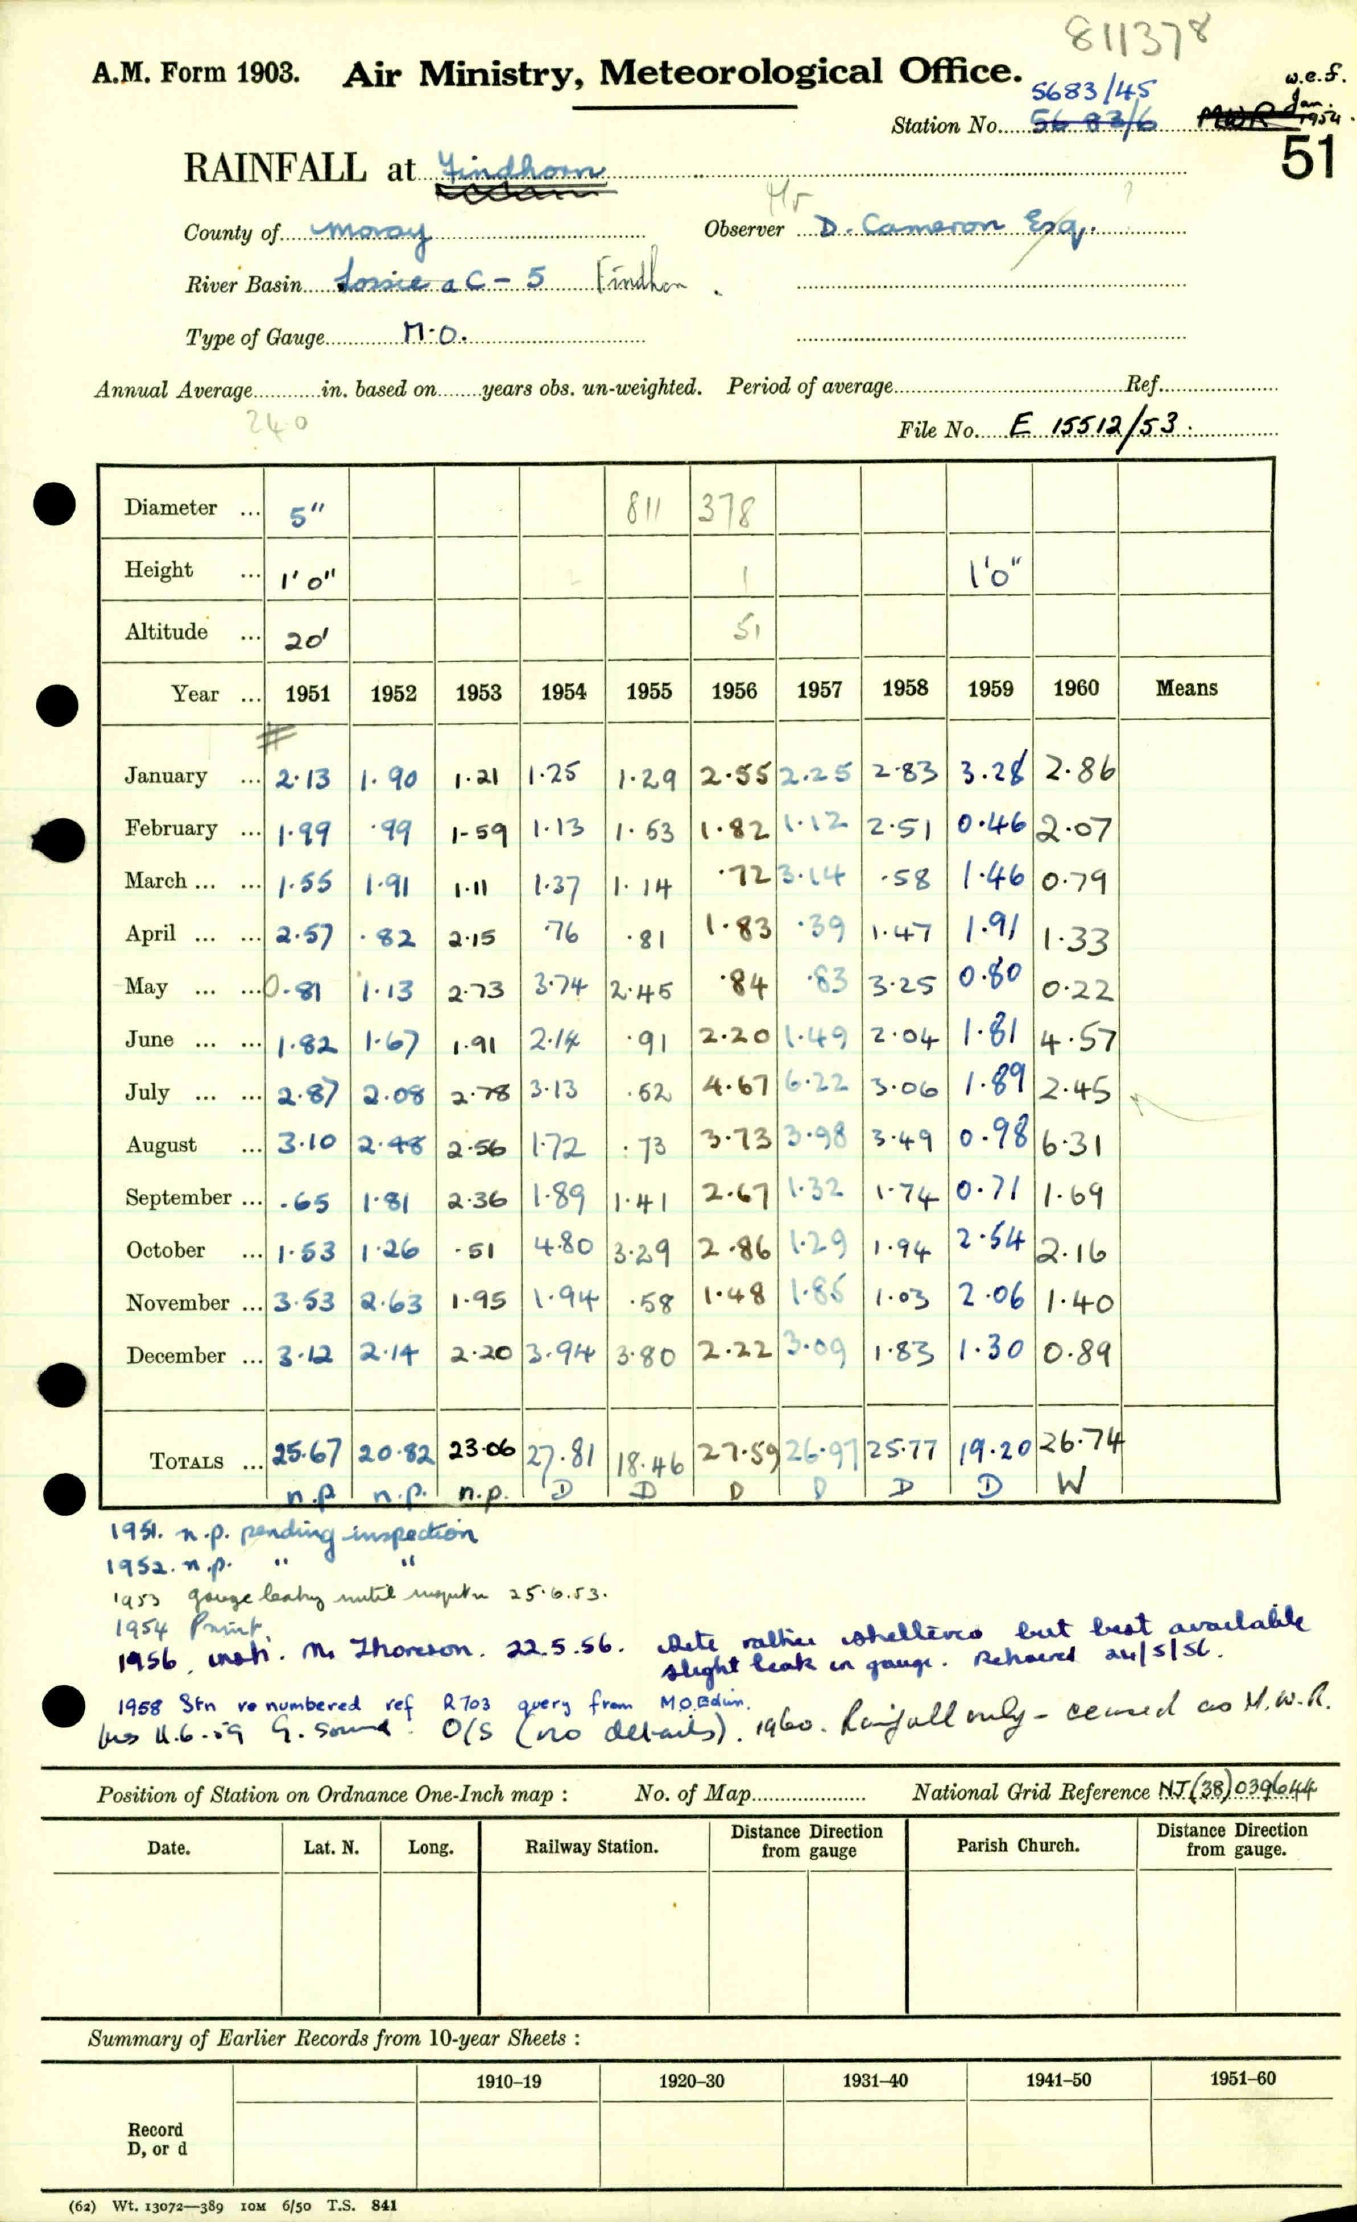 811378
A.M. Form 1903. Air Ministry, Meteorological Office.
w.e.f. Jan. 1954
5683/45
Station No. 5683/6 MWR
51
RAINFALL at Findhorn
County of Moray Observer Mr D. Cameron Esq. ?
River Basin Lossie a C - 5 Findhorn
Type of Gauge M.O.
Annual Average in. based on years obs. un-weighted. Period of average Ref.
240
File No. E 15512/53
Diameter ... 5" 811 378
Height ... 1'0" 1 1'0"
Altitude ... 20' 51
Year ... 1951 1952 1953 1954 1955 1956 1957 1958 1959 1960 Means
January ... 2.13 1.90 1.21 1.25 1.29 2.55 2.25 2.83 3.28 2.86
February ... 1.99 .99 1.59 1.13 1.53 1.82 1.12 2.51 0.46 2.07
March ... ... 1.55 1.91 1.11 1.37 1.14 .72 3.14 .58 1.46 0.79
April ... ... 2.57 .82 2.15 .76 .81 1.83 .39 1.47 1.91 1.33
May ... ... 0.81 1.13 2.73 3.74 2.45 .84 .83 3.25 0.80 0.22
June ... ... 1.82 1.67 1.91 2.14 .91 2.20 1.49 2.04 1.81 4.57
July ... ... 2.87 2.08 2.78 3.13 .52 4.67 6.22 3.06 1.89 2.45
August ... 3.10 2.48 2.56 1.72 .73 3.73 3.98 3.49 0.98 6.31
September ... .65 1.81 2.36 1.89 1.41 2.67 1.32 1.74 0.71 1.69
October ... 1.53 1.26 .51 4.80 3.29 2.86 1.29 1.94 2.54 2.16
November ... 3.53 2.63 1.95 1.94 .58 1.48 1.85 1.03 2.06 1.40
December ... 3.12 2.14 2.20 3.94 3.80 2.22 3.09 1.83 1.30 0.89
TOTALS ... 25.67 20.82 23.06 27.81 18.46 27.59 26.97 25.77 19.20 26.74
n.p. n.p. n.p. D D D D D D W
1951. n.p. pending inspection
1952. n.p. " "
1953 gauge leaky until 25.6.53.
1954 Print.
1956. M. Thoreson. 22.5.56. Site rather sheltered but best available
slight leak in gauge. 24/5/56.
1958 Stn renumbered ref R703 query from M.O. Edin.
Ins 11.6.59 G. Sound. O/S (no details). 1960. Rainfall only - ceased as M.W.R.
Position of Station on Ordnance One-Inch map : No. of Map National Grid Reference NJ(38)039644
Date. Lat. N. Long. Railway Station. Distance from Direction gauge Parish Church. Distance from Direction gauge.
Summary of Earlier Records from 10-year Sheets :
1910–19 1920–30 1931–40 1941–50 1951–60
Record
D, or d
(62) Wt. 13072—389 10M 6/50 T.S. 841